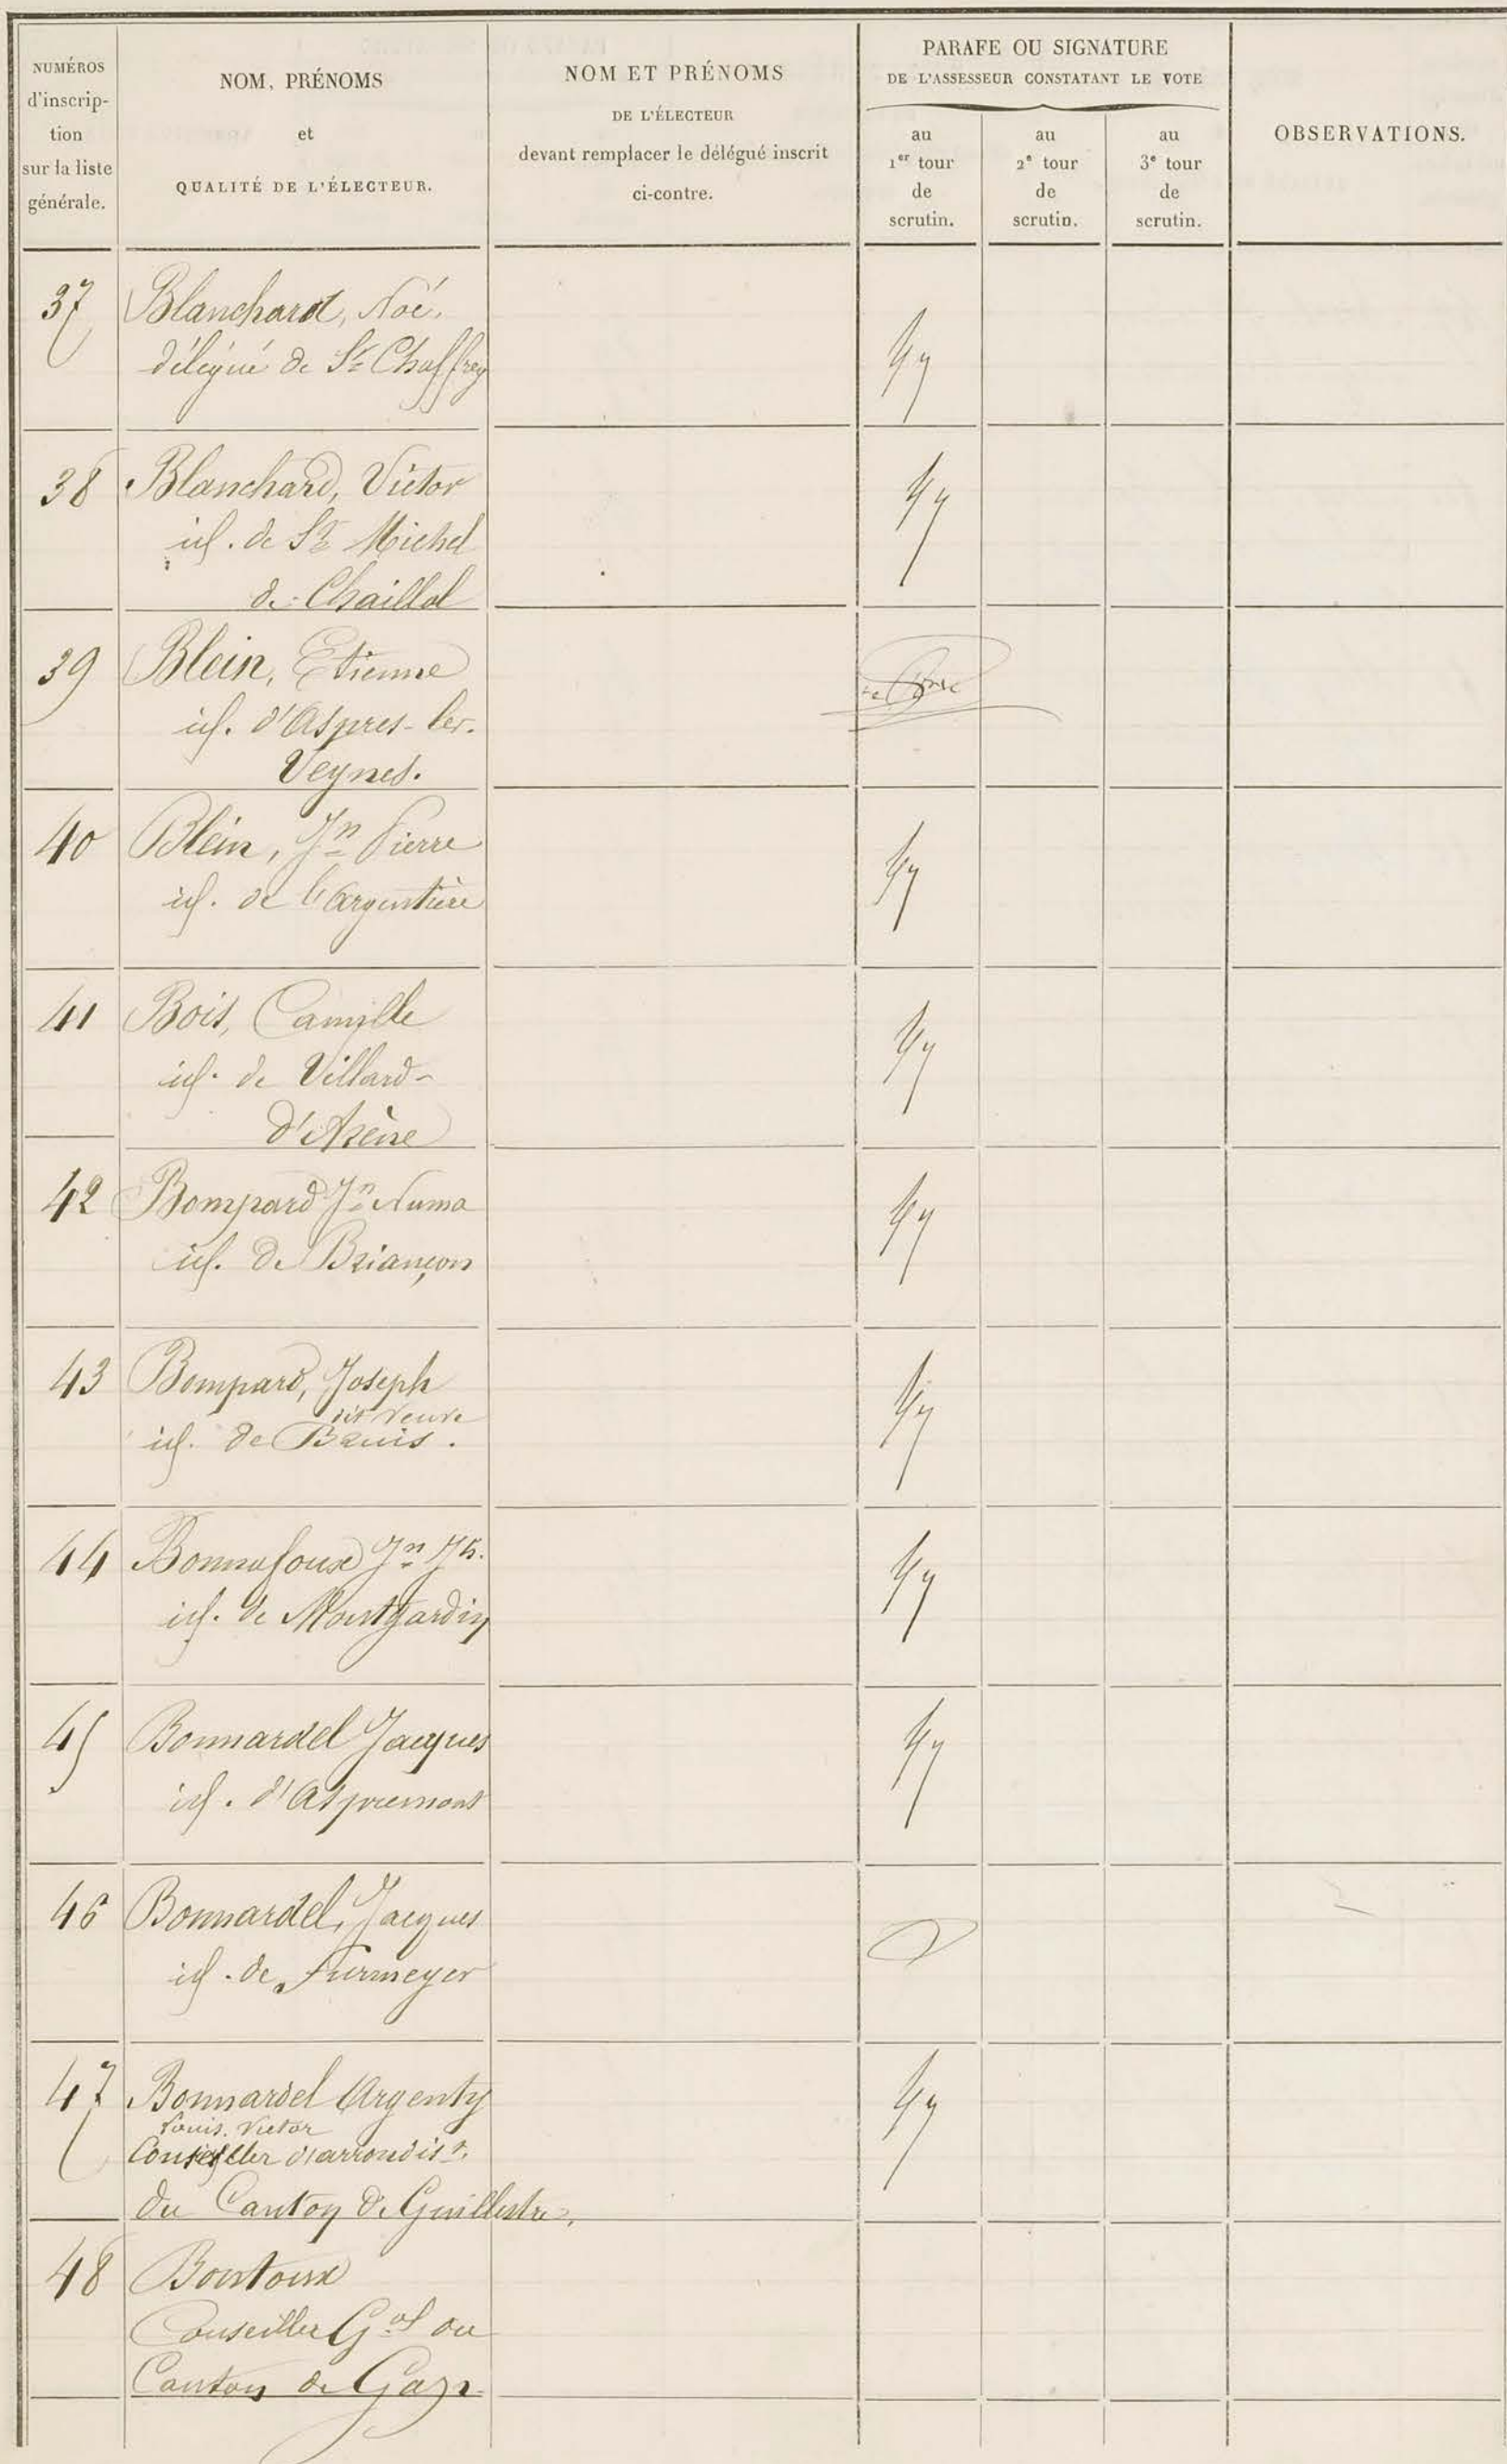 NUMÉROS
d'inscrip-
tion
sur la liste
générale.
NOM, PRÉNOMS
et
QUALITÉ DE L'ÉLECTEUR.
NOM ET PRÉNOMS
DE L'ÉLECTEUR
devant remplacer le délégué inscrit
ci-contre.
PARAFE OU SIGNATURE
DE L'ASSESSEUR CONSTATANT LE VOTE
au
1er tour
de
scrutin.
au
2e tour
de
scrutin.
au
3e tour
de
scrutin.
OBSERVATIONS.
37 Blanchard, Noé.
délégué de St Chaffrey
38 Blanchard, Victor
id. de St Michel
de Chaillol
39 Blein, Etienne
id. d'Aspres-les-
Veynes.
40 Blein, Jn Pierre
id. de l'Argentière
41 Bois, Camille
id. de Villard-
d'Arène
42 Bompard Jn Numa
id. de Briançon
43 Bompard, Joseph
dit Veuve
id. de Bruis.
44 Bonnafoux Jn Jh.
id. de Montgardin
45 Bonnardel Jacques
id. d'Aspremont
46 Bonnardel, Jacques
id. de Furmeyer
47 Bonnardel Argenty
Louis. Victor
Conseiller d'arrondist.
du Canton de Guillestre.
48 Bontoux
Conseiller Gal du
Canton de Gap